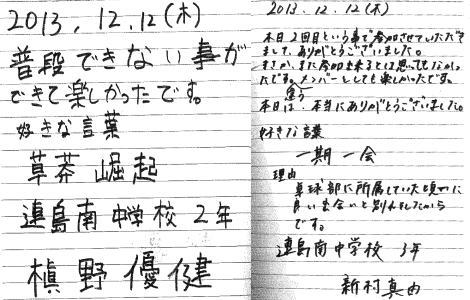 2013, 12, 12 (木)
普段できない事が
できて楽しかったです。
好きな言葉
草莽 崛起
連島南中学校 2年
槇野 優健
2013. 12. 12 (木)
本日2回目という事で参加させていただき
まして、ありがとうございました。
まさか、また参加出来るとは思ってもなかっ
たです。メンバーとしても楽しかったです。
本日は、本当にありがとうございました。
好きな言葉
一期一会
理由
卓球部に所属していた頃に
良い出会いと別れをしたから
です。
連島南中学校 3年
新村 真由